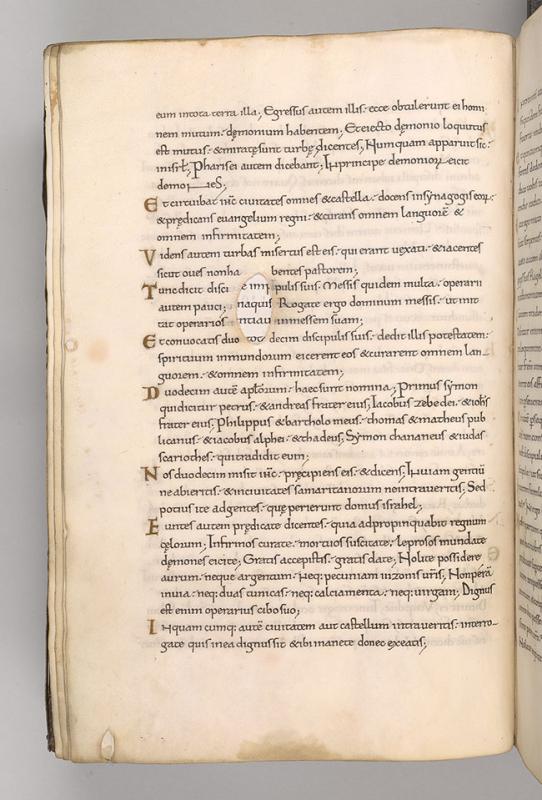 eum intota terra illa; Egressus autem illis· ecce obtulerunt ei homi
nem mutum· dęmonium habentem; Et eiecto dęmonio locutus
est mutus· & miratę sunt turbę dicentes; Numquam apparuit sic·
in isrł; Pharisei autem dicebant; In principe demonioꝝ eicit
demones;
Et circuibat iħc ciuitates omnes & castella· docens insynagogis eoꝝ·
& prędicans euangelium regni· & curans omnem languorē &
omnem infirmitatem;
Videns autem turbas misertus est eis· qui erant uexati· & iacentes
sicut oues non habentes pastorem;
Tunc dicit discipulis suis· Messis quidem multa· operarii
autem pauci; Rogate ergo dominum messis· ut mit
tat operarios inmessem suam;
Et conuocatis duodecim discipulis suis· dedit illis potestatem·
spirituum inmundorum· ut eicerent eos & curarent omnem lan
guorem· & omnem infirmitatem;
Duodecim autē apłorum· haec sunt nomina; Primus symon
qui dicitur petrus· & andreas frater eius; Iacobus zebedei· & iohs
frater eius; Philippus & bartholomeus· thomas & matheus pub
licanus· & iacobus alphei· & thadeus; Symon chananeus & iudas
scariothes· qui tradidit eum;
Nos duodecim misit iħc· pręcipiens eis· & dicens; In uiam gentiū
ne abieritis· & inciuitates samaritanorum ne intraueritis; Sed
potius ite ad gentes· quę perierunt domus israhel;
Euntes autem prędicate dicentes· quia adpropinquabit regnum
cęlorum; Infirmos curate· mortuos suscitate· leprosos mundate
dęmones eicite; Gratis accepistis· gratis date; Nolite possidere
aurum· neque argentum· neq; pecuniam inzonis uris; Non perā
inuia· neq; duas tunicas· neq; calciamenta· neq; uirgam; Dignus
est enim operarius cibo suo;
In quam cumq; autē ciuitatem aut castellum intraueritis· interro-
gate quis inea dignus sit· & ibi manete donec exeatis;